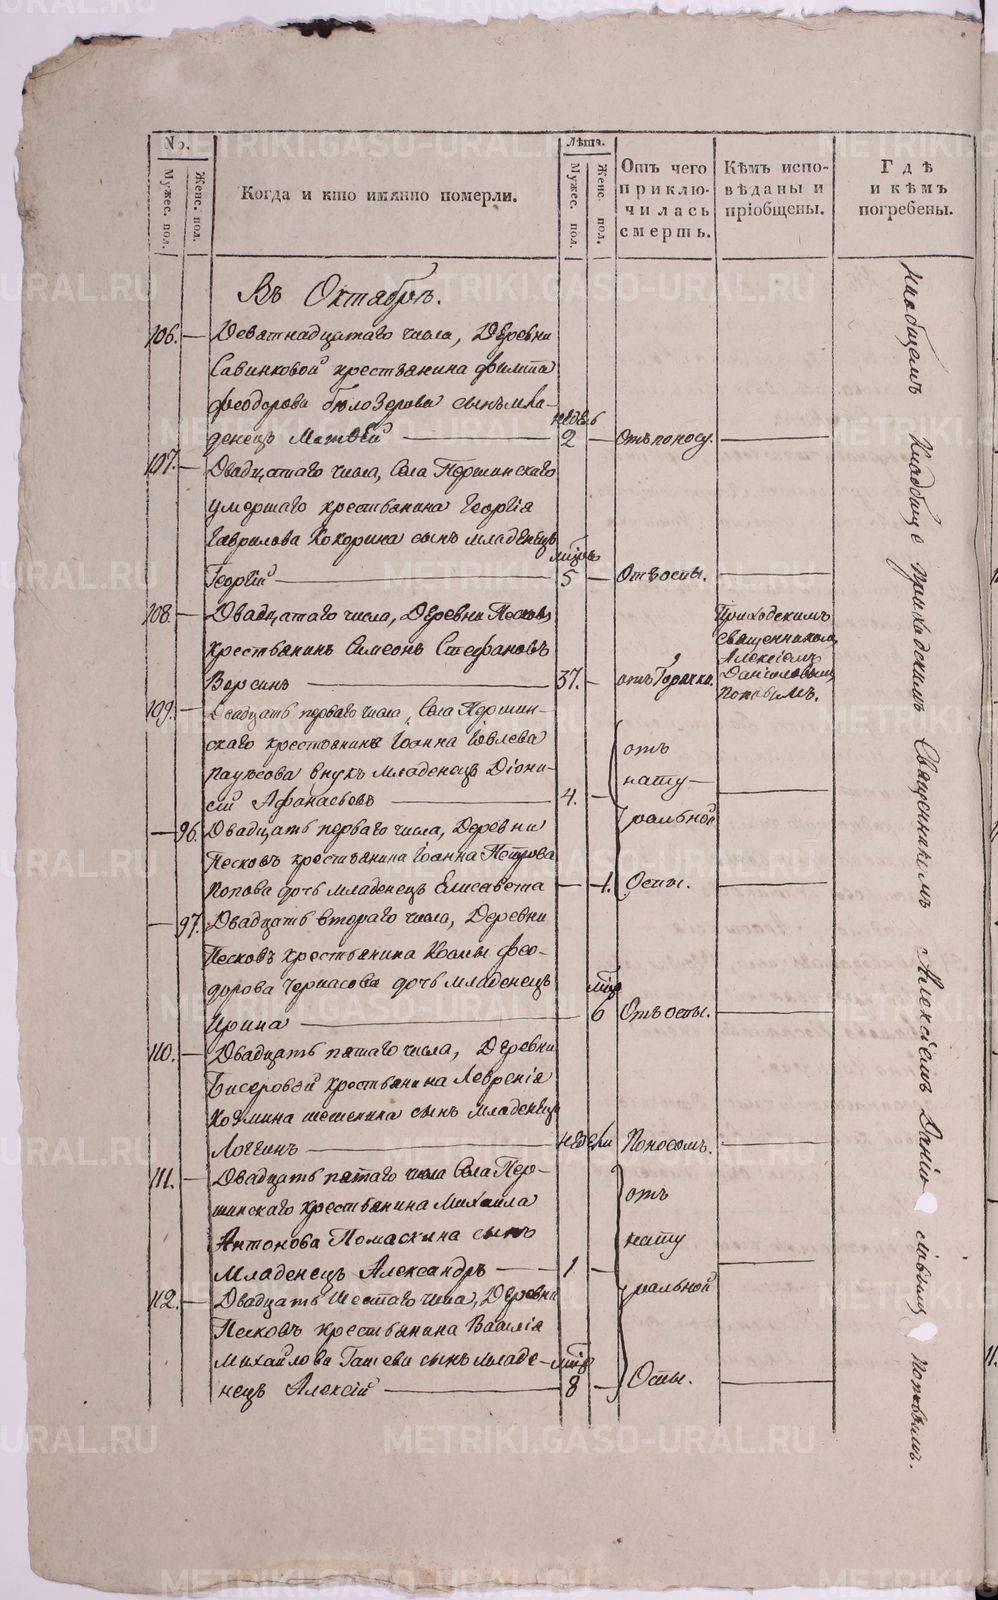 No.
Мужес. пол.
Женс. пол.
Когда и кто имянно померли.
Лѣта.
Мужес. пол.
Женс. пол.
Отъ чего приклю-
чилась
смерть.
Кѣмъ испо-
вѣданы и
пріобщены.
Гдѣ
и кѣмъ
погребены.
Въ Октябрѣ.
106. — Девятнадцатаго числа, Деревни
Савинковой крестьянина Филипа
Феодорова Бѣлозерова сынъ мла-
денецъ Матвѣй — недѣль 2 — Отъ поносу. —
107. — Двадцатаго числа, Села Першинскаго
умершаго крестьянина Георгія
Гаврилова Кокорина сынъ младенецъ
Георгій — 5 — Отъ оспы. —
108. — Двадцатаго числа, Деревни Песковъ
крестьянинъ Симеонъ Стефановъ
Ворсинъ — 37. — отъ Горячки.
Приходскимъ
священникомъ
Алексіемъ
Даніиловымъ
Поповымъ.
109. — Двадцать перваго числа, Села Першин-
скаго крестьянина Іоанна Іовлева
внукъ младенецъ Діони-
сій Афанасьевъ — 4. —
отъ
нату-
ральной
Оспы.
— 96. Двадцать перваго числа, Деревни
Песковъ крестьянина Іоанна Петрова
Попова дочь младенецъ Елисавета — 1.
— 97. Двадцать втораго числа, Деревни
Песковъ крестьянина Козмы Фео-
дорова дочь младенецъ
Ирина — 6 Отъ оспы. —
110. — Двадцать пятаго числа, Деревни
Бисеровой крестьянина Лаврентія
Козмина сынъ младенецъ
Логгинъ — недѣли Поносомъ. —
111. — Двадцать пятаго числа Села Пер-
шинскаго крестьянина Михаила
Антонова Помаскина сынъ
младенецъ Александръ — 1 —
отъ
нату
ральной
Оспы.
112. — Двадцать шестаго числа, Деревни
Песковъ крестьянина Василія
Михайлова сынъ младе-
нецъ Алексій — 8 —
на общемъ кладбище приходскимъ Священникомъ Алексіемъ Даніиловымъ Поповымъ.
METRIKI.GASO-URAL.RU